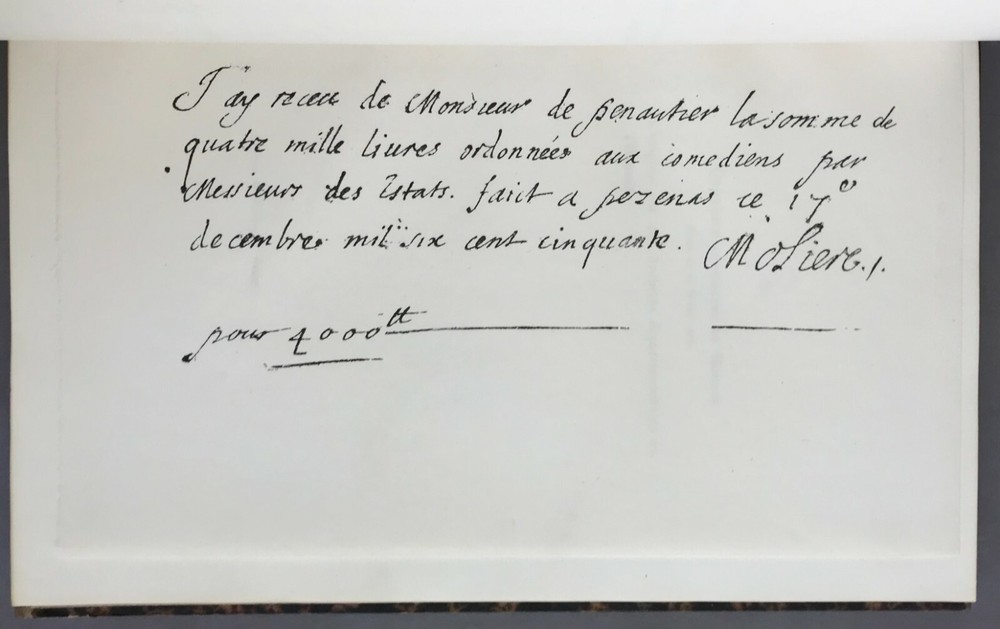 J'ay receu de Monsieur de penautier la somme de
quatre mille liures ordonnées aux comediens par
Messieurs des Estats. faict a pezenas ce 17e
decembre mil six cent cinquante. Moliere./.
pour 4000tt